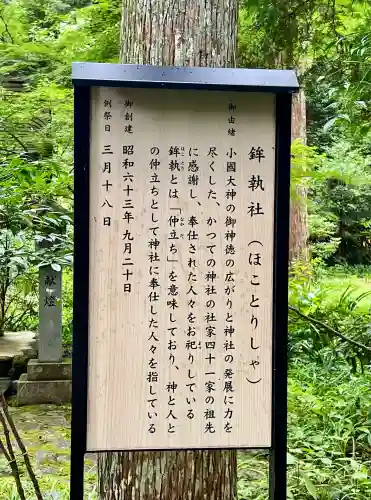 鉾執社（ほことりしゃ）
御由緒
小國大神の御神徳の広がりと神社の発展に力を
尽くした、かつての神社の社家四十一家の祖先
に感謝し、奉仕された人々をお祀りしている
鉾執とは「仲立ち」を意味しており、神と人と
の仲立ちとして神社に奉仕した人々を指している
御創建
昭和六十三年九月二十日
例祭日
三月十八日
献燈